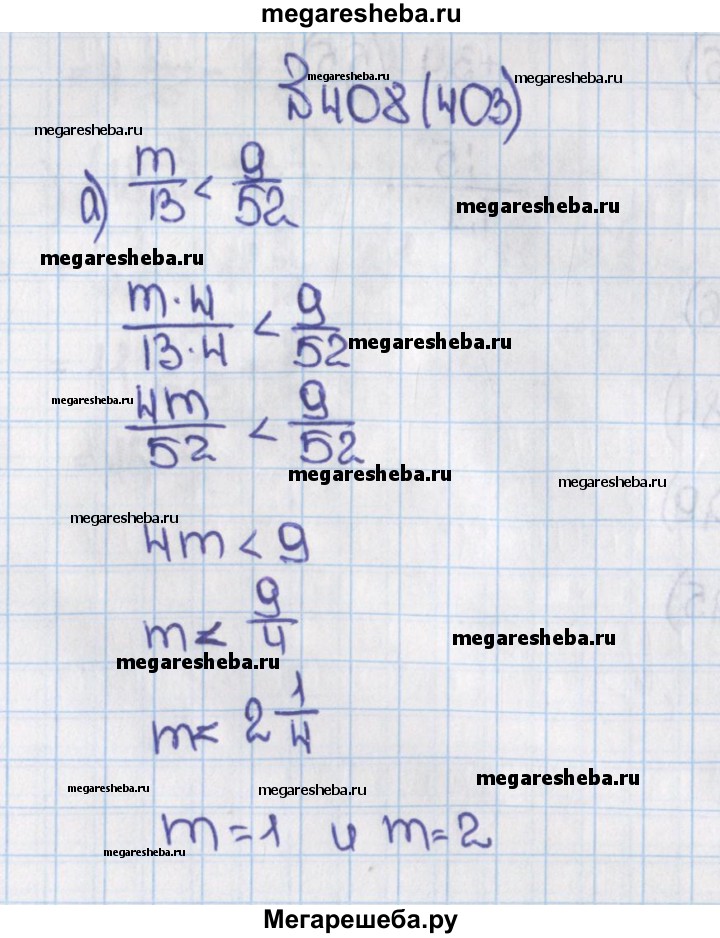 megaresheba.ru
№408(403)
megaresheba.ru
megaresheba.ru
megaresheba.ru
а) m/13 < 9/52
megaresheba.ru
megaresheba.ru
m·4/13·4 < 9/52
megaresheba.ru
4m/52 < 9/52
megaresheba.ru
megaresheba.ru
megaresheba.ru
megaresheba.ru
4m < 9
m < 9/4
megaresheba.ru
megaresheba.ru
m < 2 1/4
megaresheba.ru
megaresheba.ru
megaresheba.ru
m=1 и m=2
megaresheba.ru
Мегарешеба.ру